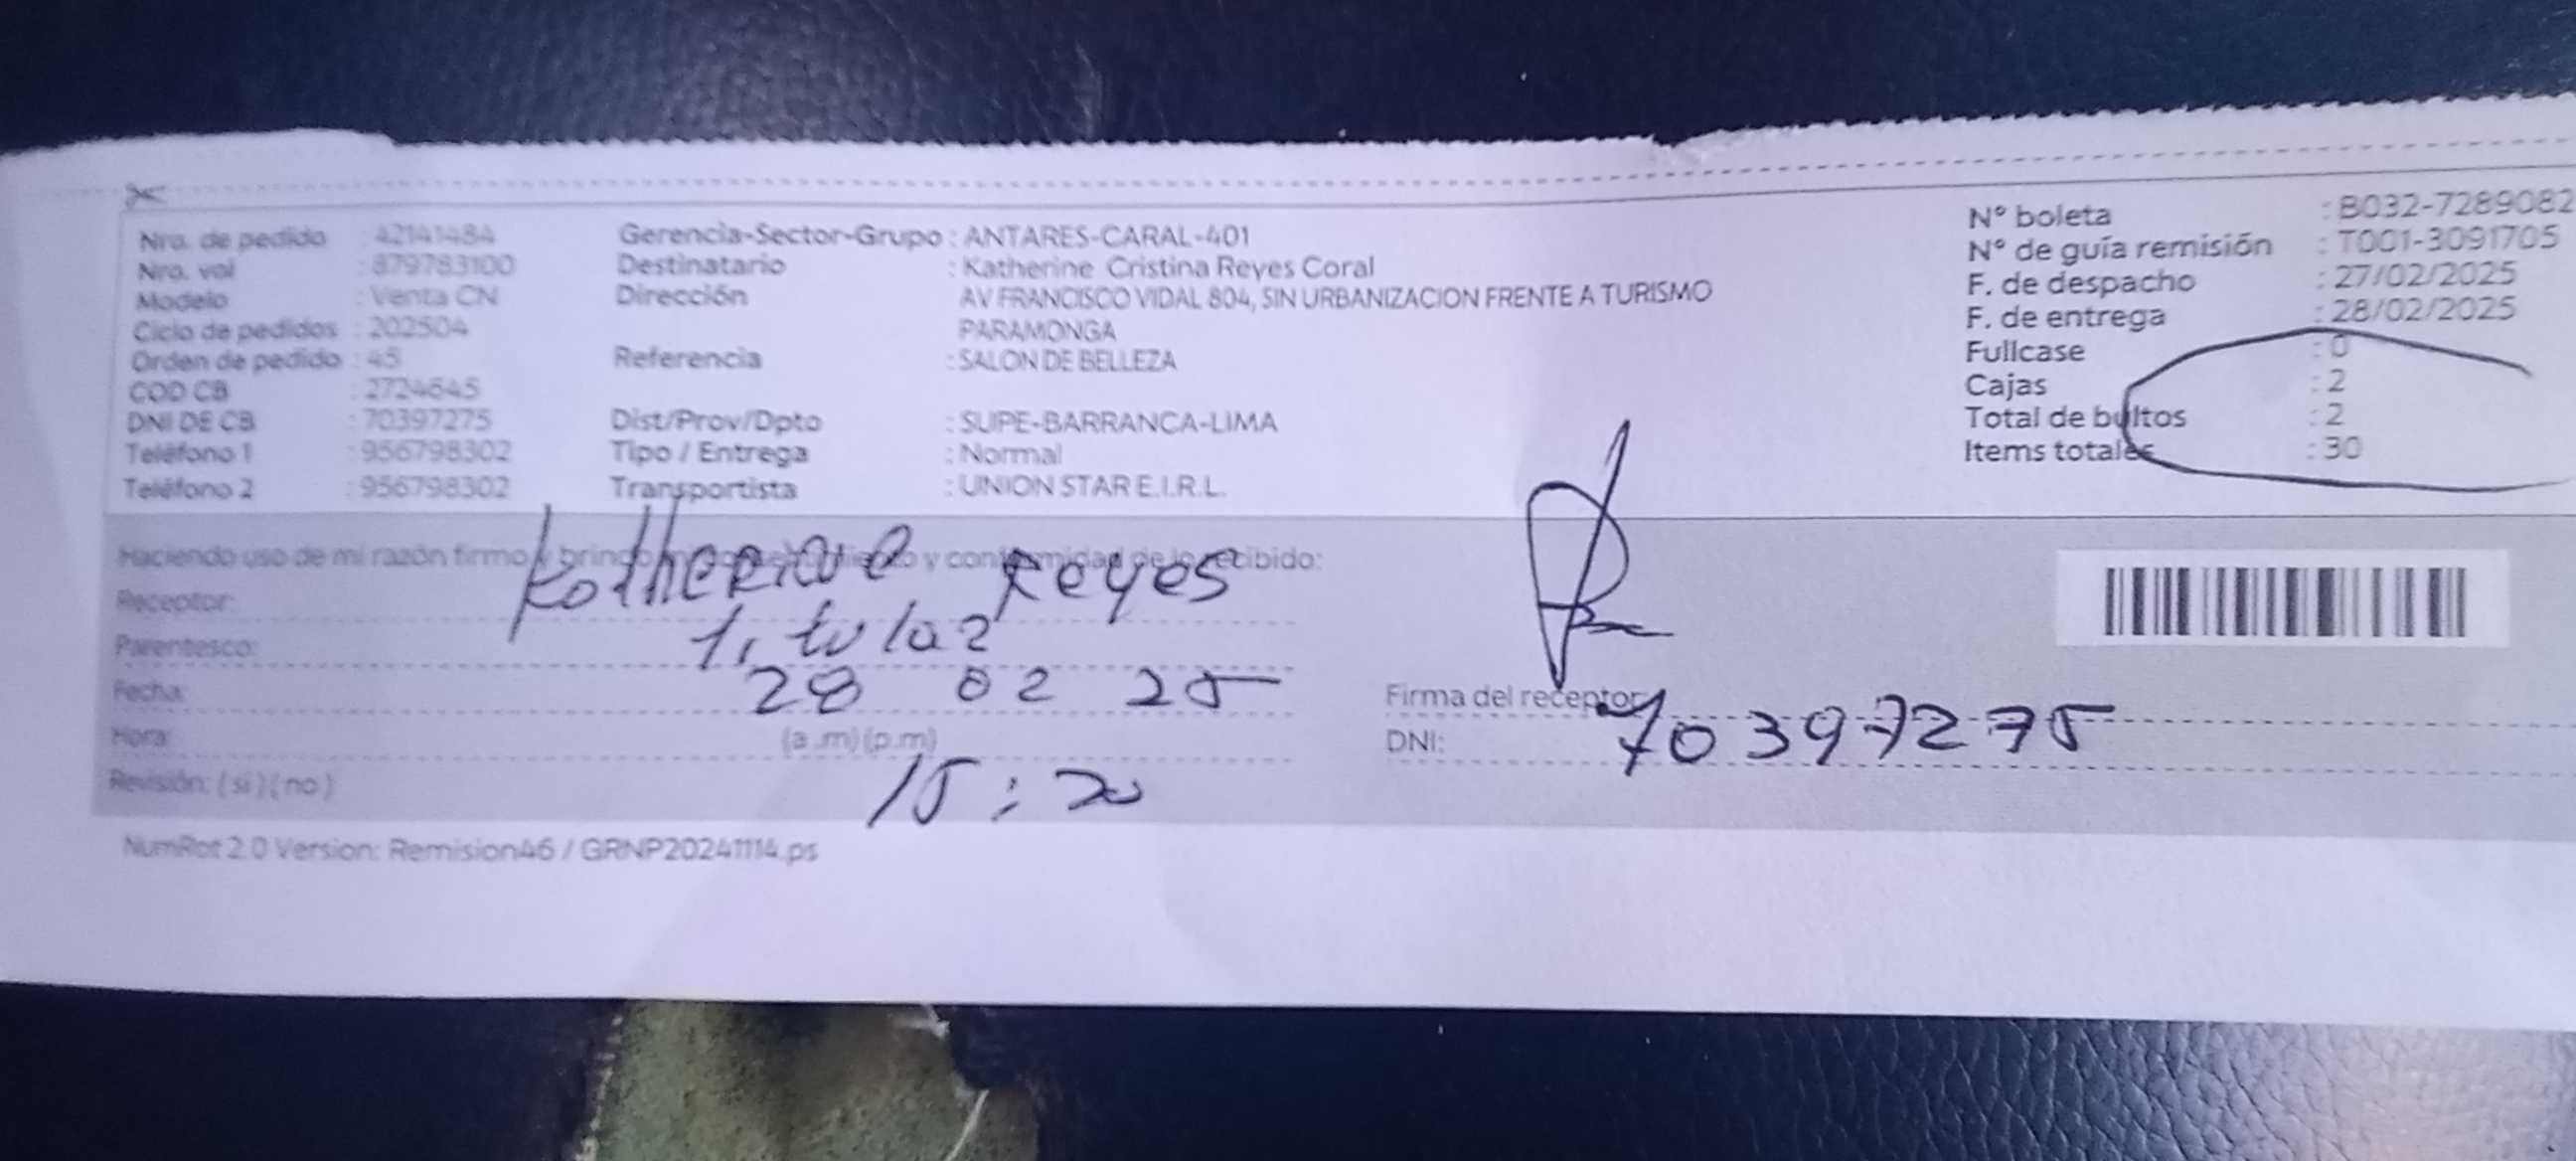 Nro. de pedido : 42141484
Nro. val : 879783100
Modelo : Venta CN
Ciclo de pedidos : 202504
Orden de pedido : 45
COD CB : 2724645
DNI DE CB : 70397275
Teléfono 1 : 956798302
Teléfono 2 : 956798302
Gerencia-Sector-Grupo : ANTARES-CARAL-401
Destinatario : Katherine Cristina Reyes Coral
Dirección AV FRANCISCO VIDAL 804, SIN URBANIZACION FRENTE A TURISMO
PARAMONGA
Referencia : SALON DE BELLEZA
Dist/Prov/Dpto : SUPE-BARRANCA-LIMA
Tipo / Entrega : Normal
Transportista : UNION STAR E.I.R.L.
N° boleta : B032-7289082
N° de guía remisión : T001-3091705
F. de despacho : 27/02/2025
F. de entrega : 28/02/2025
Fullcase : 0
Cajas : 2
Total de bultos : 2
Items totales : 30
Haciendo uso de mi razón firmo y brindo y conformidad de lo recibido:
Receptor: Katherine Reyes
Parentesco: Titular
Fecha: 28 02 25
Hora: (a.m) (p.m)
15:20
Revisión: ( si ) ( no )
Firma del receptor
DNI: 70397275
NumRot 2.0 Version: Remision46 / GRNP20241114.ps